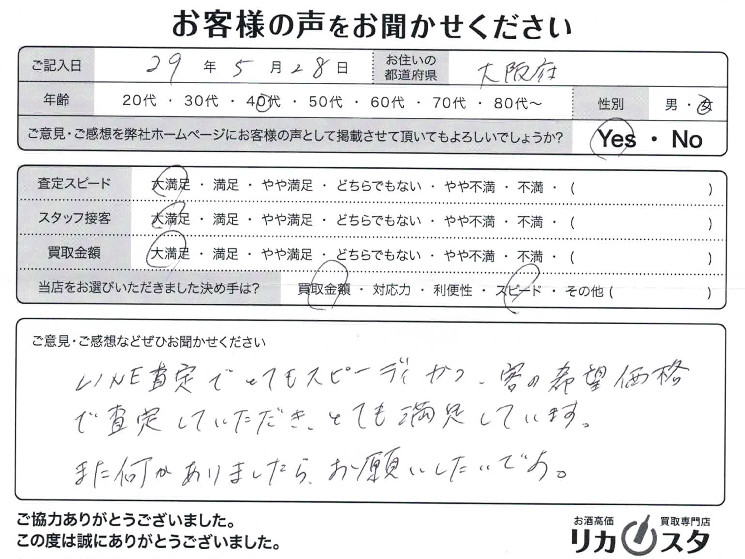 お客様の声をお聞かせください
ご記入日 29 年 5 月 28 日 お住いの都道府県 大阪府
年齢 20代 ・ 30代 ・ 40代 ・ 50代 ・ 60代 ・ 70代 ・ 80代～ 性別 男 ・ 女
ご意見・ご感想を弊社ホームページにお客様の声として掲載させて頂いてもよろしいでしょうか? Yes ・ No
査定スピード 大満足 ・ 満足 ・ やや満足 ・ どちらでもない ・ やや不満 ・ 不満 ・ ( )
スタッフ接客 大満足 ・ 満足 ・ やや満足 ・ どちらでもない ・ やや不満 ・ 不満 ・ ( )
買取金額 大満足 ・ 満足 ・ やや満足 ・ どちらでもない ・ やや不満 ・ 不満 ・ ( )
当店をお選びいただきました決め手は? 買取金額 ・ 対応力 ・ 利便性 ・ スピード ・ その他 ( )
ご意見・ご感想などぜひお聞かせください
LINE査定でとてもスピーディかつ、客の希望価格
で査定していただき、とても満足しています。
また何かありましたら、お願いしたいです。
ご協力ありがとうございました。
この度は誠にありがとうございました。
お酒高価 買取専門店
リカスタ